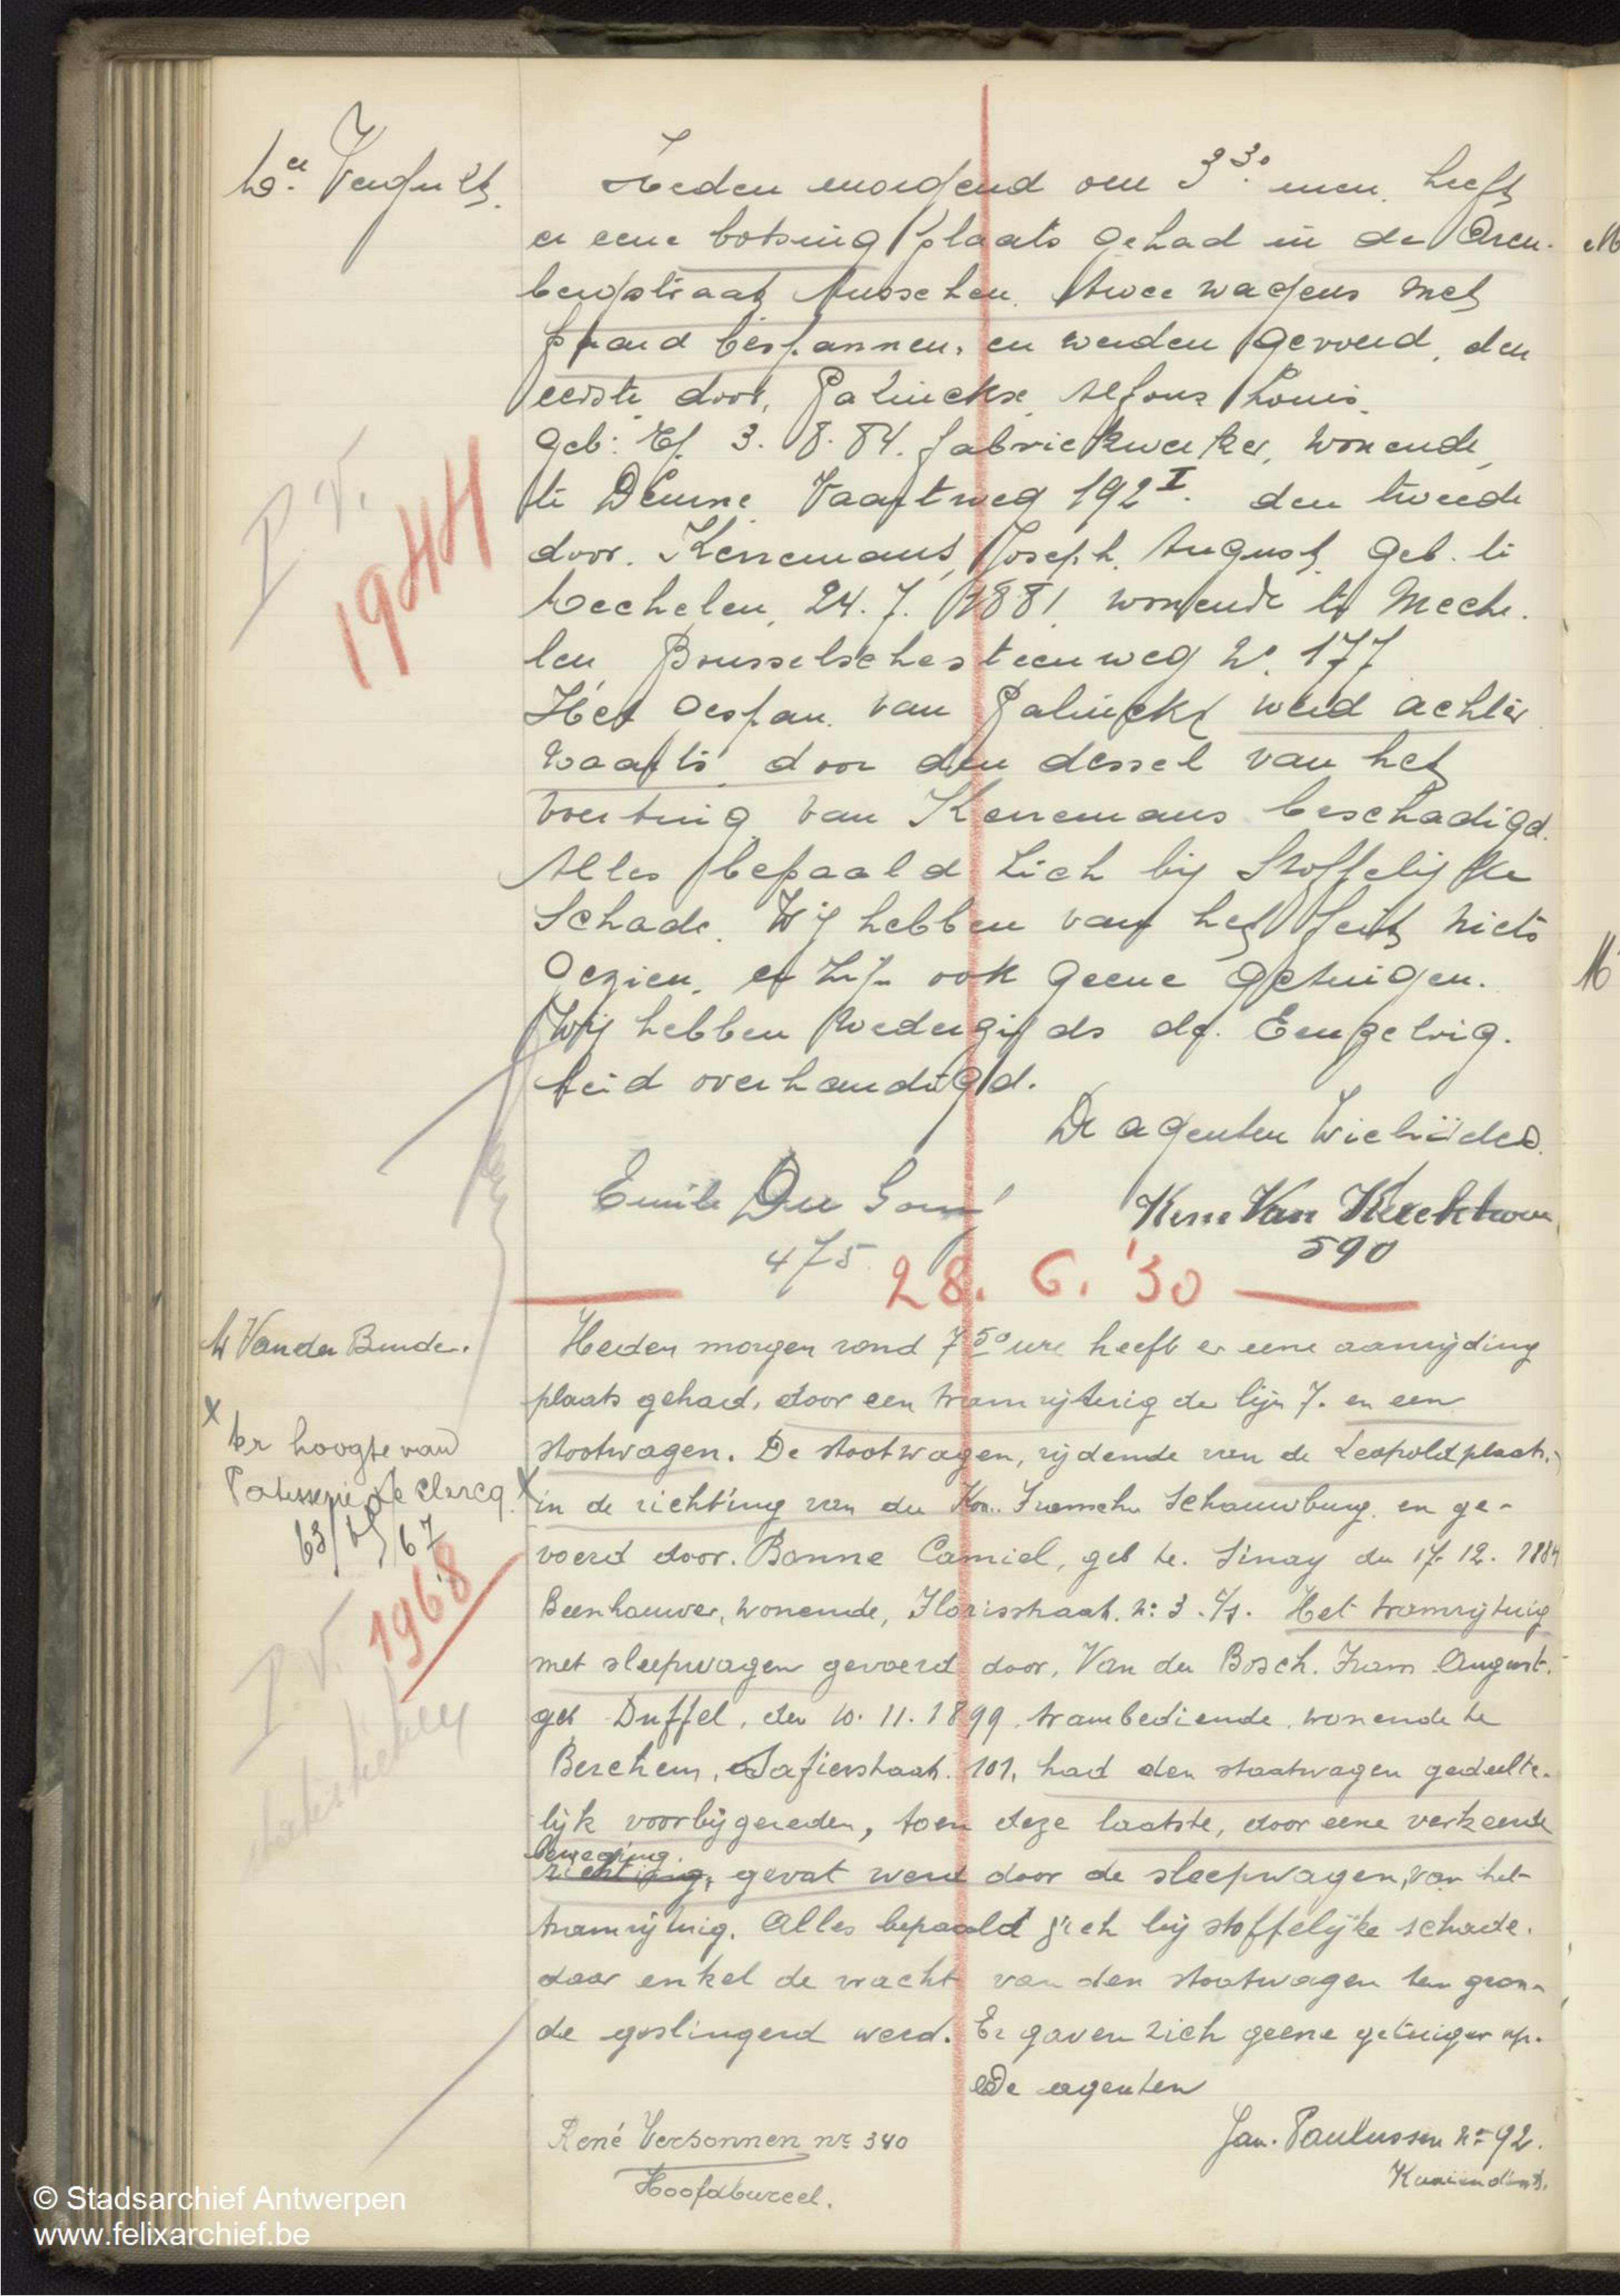 Heden morgend om 3³⁰ uren heeft
er eene botsing plaats gehad in de Aren-
bergstraat tusschen twee wagens met
paard bespannen, en werden gevoerd, den
eerste door, Palinckx Alfons Louis
geb: 3.8.84. fabriekwerker, wonende
te Deurne Vaartweg 192 I. den tweede
door. Kerremans, Joseph August geb. te
Mechelen, 24.7.1881 wonende te Meche-
len Brusselschesteenweg N° 177
Het gespan van Palinckx werd achter
waarts door den dessel van het
voertuig van Kerremans beschadigd.
Alles bepaald zich bij stoffelijke
schade. Wij hebben van het feit niets
gezien, er zijn ook geene getuigen.
Wij hebben wederzijds de Eenzelvig-
heid overhandigd.
De agenten
Emile De
475
René Van Kerckhoven
590
28.6.'30
P.V.
1944
Van der
Heden morgen rond 7⁵⁰ ure heeft er eene aanrijding
plaats gehad, door een tramrijtuig der lijn 7. en een
stootwagen. De stootwagen, rijdende van de Leopoldplaats,
x in de richting van den Kon. Fransche Schouwburg en ge-
voerd door. Bonne Camiel, geb te. Sinay den 17.12.1884
Beenhouwer, wonende, Florisstraat. N: 3. Het tramrijtuig
met sleepwagen gevoerd door, Van den Bosch. Frans August.
geb Duffel, den 10.11.1899. trambediende, wonende te
Berchem, Dafierstraat. 101, had den stootwagen gedeelte-
lijk voorbijgereden, toen deze laatste, door eene verkeerde
beweging.
richting, gevat werd door de sleepwagen, van het
tramrijtuig. Alles bepaald zich bij stoffelijke schade.
daar enkel de vracht van den stootwagen ten gron-
de geslingerd werd. Er gaven zich geene getuigen op.
De agenten
René Versonnen nr 340
Hoofdbureel.
Jan. Paulussen nr 92.
x
ter hoogte van
Patisserie De Clercq.
63/65/67
P.V.
1968
© Stadsarchief Antwerpen
www.felixarchief.be